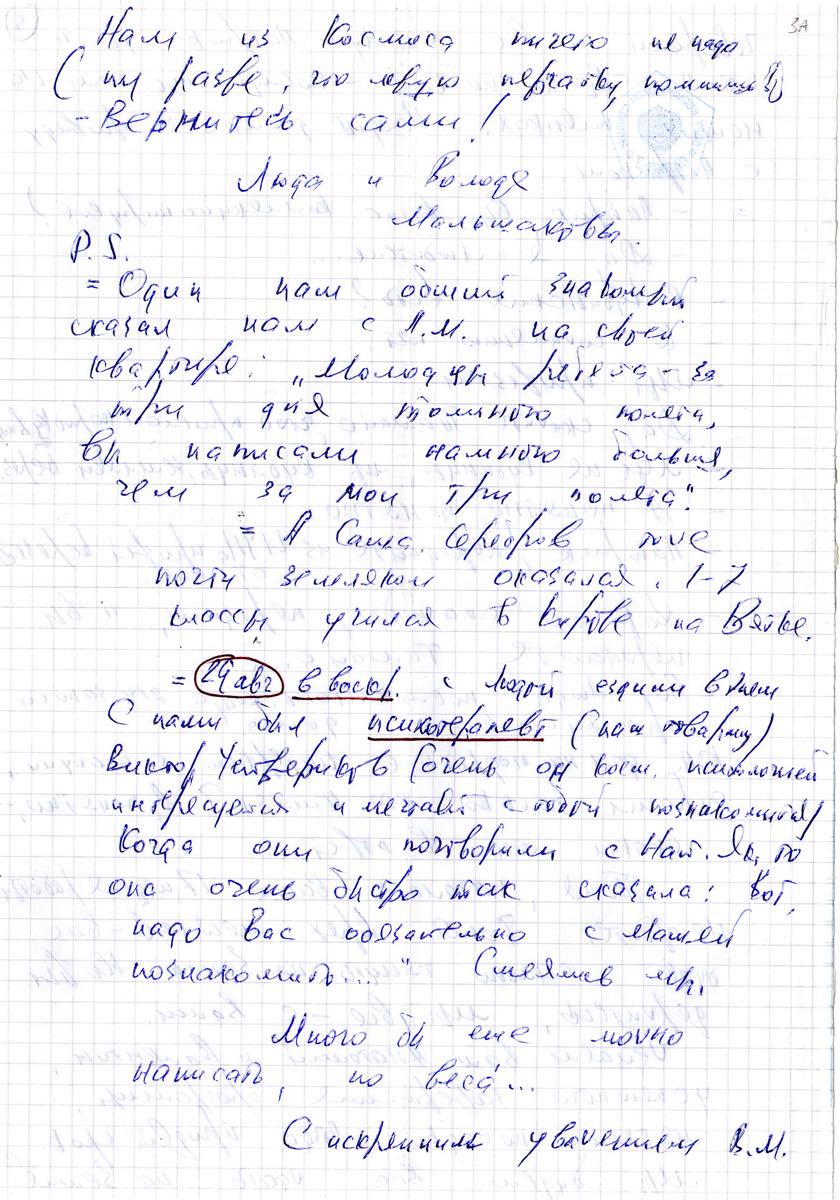 3А
Нам из Космоса ничего не надо
(ну разве, что левую перчатку, помнишь?)
- Вернитесь сами!
Люда и Володя
Мальшаковы.
P.S.
= Один нам общий знакомый
сказал нам с А.М. на своей
квартире: „Молодцы ребята - за
три дня полета,
вы написали намного больше,
чем за мои три полета".
= А Сашка Серебров тоже
почти земляком оказался. 1-7
классы учился в Кирове на Вятке.
= 24 авг в воскр. с Людой ездили
С нами был психотерапевт (наш товарищ)
Виктор Четвериков (очень он косм. психологией
интересуется и мечтает с тобой познакомиться)
Когда они поговорили с Нат. Як, то
она очень быстро так сказала: Вот,
надо Вас обязательно с Машей
познакомить..." Смеялись мы,
Много бы еще можно
написать, но веса...
С искренним уважением В.М.